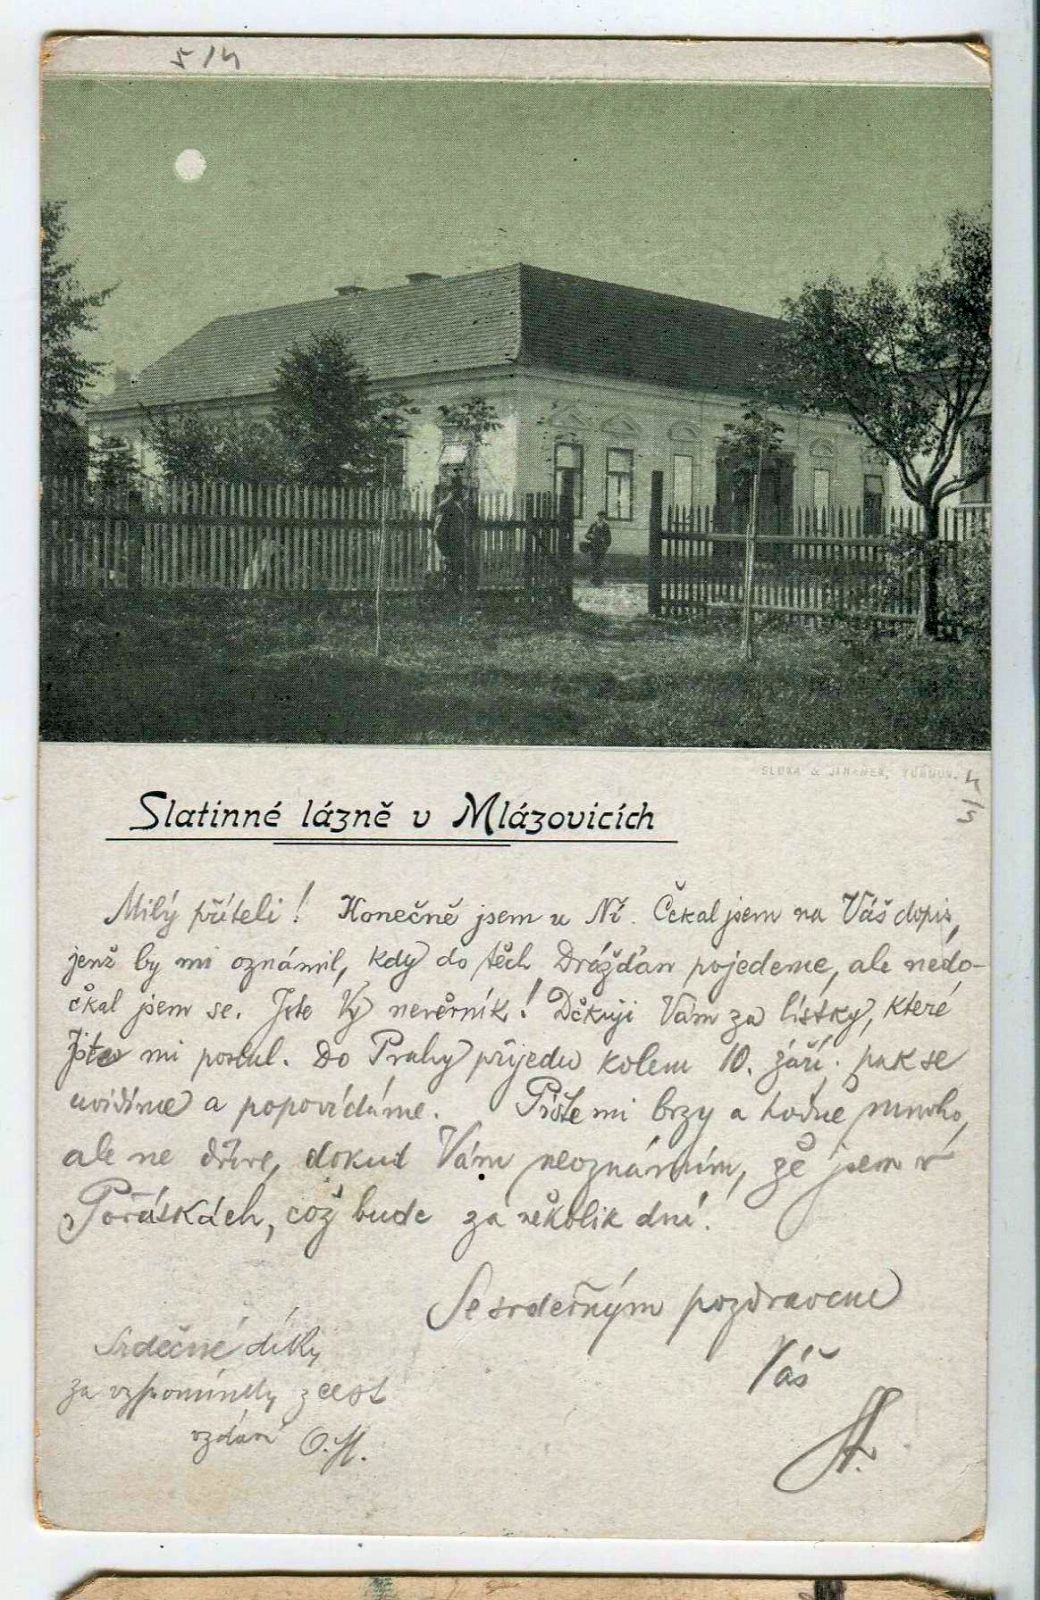 5/4
Slatinné lázně v Mlázovicích
Milý příteli! Konečně jsem u Ní. Čekal jsem na Váš dopis,
jenž by mi oznámil, kdy do těch Drážďan pojedeme, ale nedo-
čkal jsem se. Jste Vy nevěrník! Děkuji Vám za lístky, které
Jste mi poslal. Do Prahy přijedu kolem 10. září. pak se
uvidíme a popovídáme. Pište mi brzy a hodně mnoho,
ale ne dříve, dokud Vám neoznámím, že jsem v
což bude za několik dní.
Se srdečným pozdravem
Váš
Srdečné díky
za vzpomínky z cest
vzdává O.H.